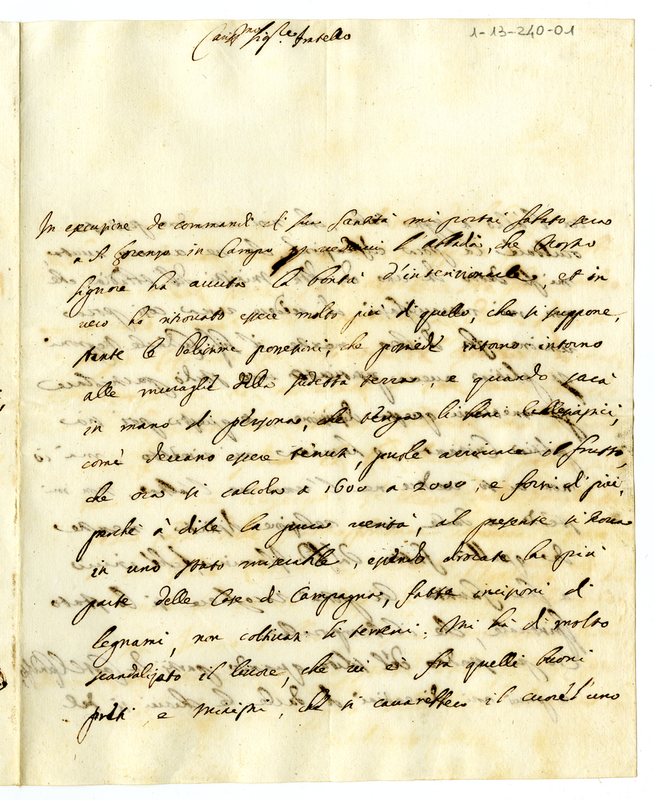 1-13-240-01
Cariss.mo Sig.re fratello
In esecuzione de commandi di sua Santità mi portai sabato sera
a S. Lorenzo in Campo per vederci l'abbadia, che Nostro
Signore ha avuta la bontà d'intenzionarle, et in
vero ho ritrovato essere molto più di quello, che si suppone,
stante le bellissime possessioni, che possiede intorno intorno
alle muraglie della sudetta terra, e quando sarà
in mano di persona, che tenga li beni Ecclesiastici,
come devano essere tenuti, puole arrivare il frutto,
che ora si calcola a 1600 a 2000, e forsi di più,
perche à dirle la pura verità, al presente si trova
in uno stato miserabile, essendo dirocate la più
parte delle Case di Campagna, fatte incisioni di
legnami, non coltivati li terreni. Mi hà di molto
scandalizato il livore, che vi è frà quelli buoni
preti, e Ministri, che si cavarebbero il cuore l'uno